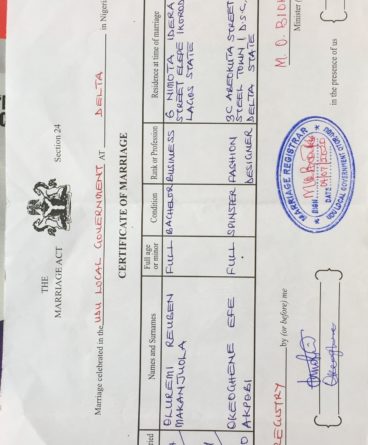 THE
MARRIAGE ACT
Section 24
Marriage celebrated in the UDU LOCAL GOVERNMENT AT DELTA in Nigeria
CERTIFICATE OF MARRIAGE
Names and Surnames
Full age
or minor
Condition
Rank or Profession
Residence at time of marriage
OLUREMI REUBEN
MAKANJUOLA
FULL
BACHELOR
BUSINESS
6 NIMOTA IDERA
STREET ELEPE IKORODU
LAGOS STATE
OKEOGHENE EFE
AKPOBI
FULL
SPINSTER
FASHION
DESIGNER
3C ABEOKUTA STREET
STEEL TOWN 1 D.S.C,
DELTA STATE
REGISTRY by (or before) me
M. O. BIOK
Minister (
in the presence of us
MARRIAGE REGISTRAR
SIGN
DATE
UDU LOCAL GOVERNMENT COUNCIL